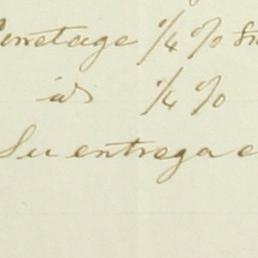 Corretage 1/4 % S
id 1/4 %
Su entrega e